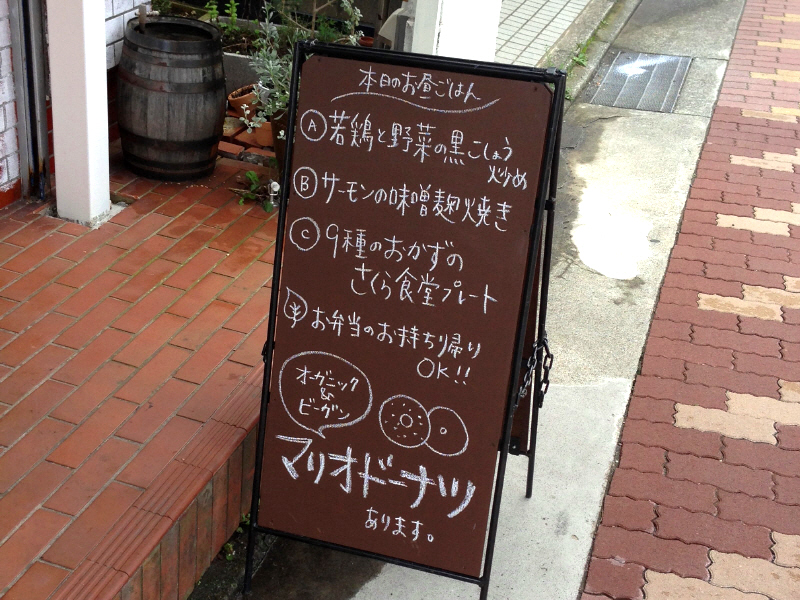 本日のお昼ごはん
Ⓐ 若鶏と野菜の黒こしょう
炒め
Ⓑ サーモンの味噌麹焼き
Ⓒ 9種のおかずの
さくら食堂プレート
お弁当のお持ち帰り
OK!!
オーガニック
&
ビーガン
マリオドーナツ
あります。